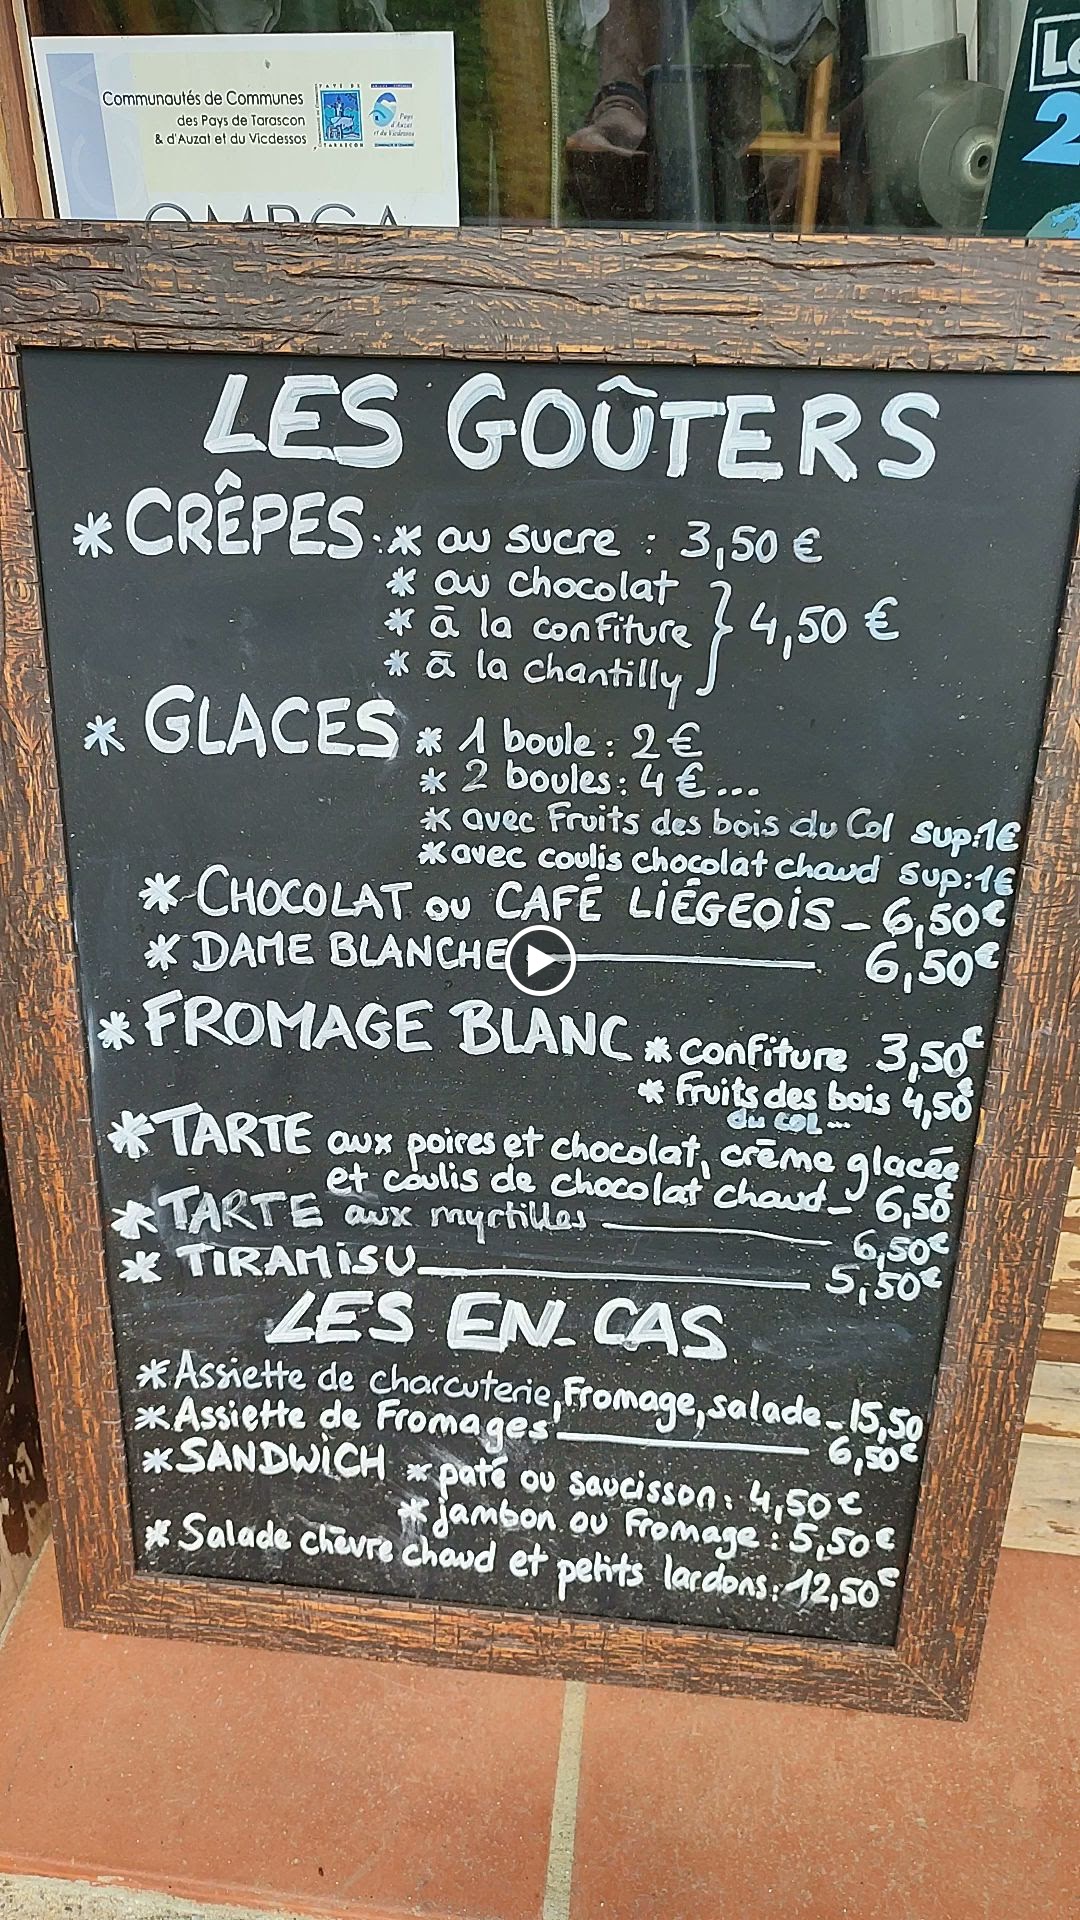 Communautés de Communes
des Pays de Tarascon
& d'Auzat et du Vicdessos
PAYS DE
TARASCON
Pays
d'Auzat
et du Vicdessos
LES GOÛTERS
* CRÊPES : * au sucre : 3,50 €
* au chocolat
* à la confiture } 4,50 €
* à la chantilly
* GLACES * 1 boule : 2 €
* 2 boules : 4 € ...
* avec Fruits des bois du Col sup:1€
* avec coulis chocolat chaud sup:1€
* CHOCOLAT ou CAFÉ LIÉGEOIS - 6,50€
* DAME BLANCHE 6,50€
* FROMAGE BLANC * confiture 3,50€
* Fruits des bois 4,50€
du COL ...
* TARTE aux poires et chocolat, crème glacée
et coulis de chocolat chaud - 6,50€
* TARTE aux myrtilles 6,50€
* TIRAMISU 5,50€
LES EN-CAS
* Assiette de charcuterie, Fromage, salade - 15,50
* Assiette de Fromages 6,50€
* SANDWICH * paté ou saucisson : 4,50 €
* jambon ou Fromage : 5,50 €
* Salade chèvre chaud et petits lardons : 12,50€